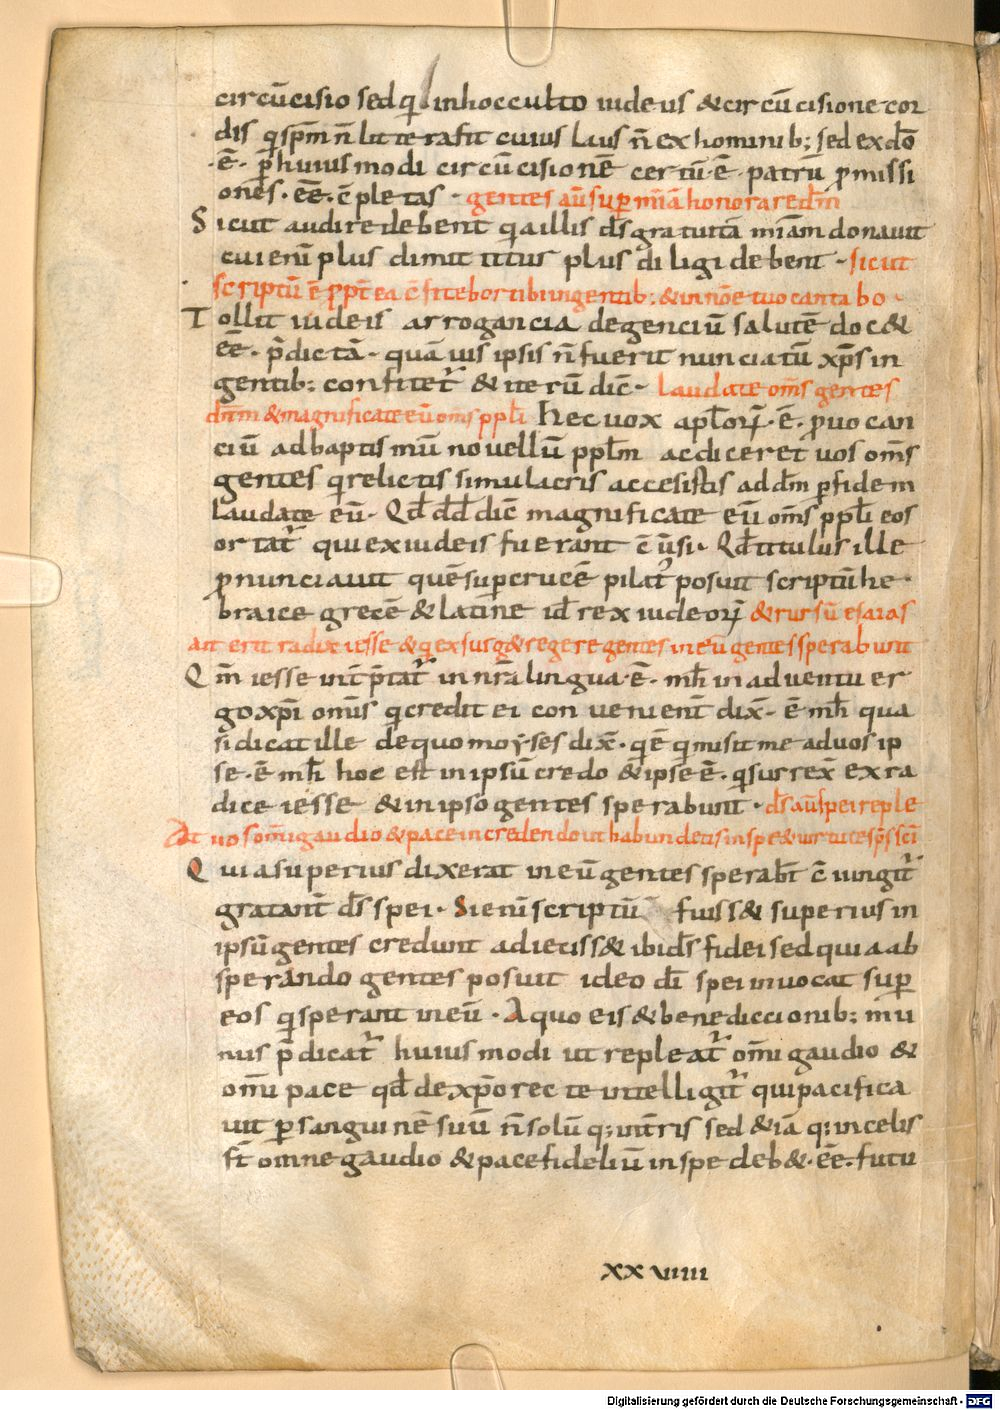 circūcisio sed qi inhocculto iudeus & circūcisione cor
dis q spm̄ n̄ litterafit cuius laus n̄ ex hominib; sed ex do̅
·ē· p̄ huiusmodi circūcisionē certū·ē· patrū p̄missi
ones· eē· c̄pletas · gentes aū sup m̄iā honorare dm̄
Sicut audire debent q̄a illis ds̄ gratuitā miam̄ donauit
cui eni plus dimittitur plus diligi debent · sicut
scriptū ē p̄pt̄ea c̄fitebor tibi in gentib: & in nōe tuo cantabo ·
Tollit iudeis arrogancia de genciū salutē doc&
eē· p̄dictā · quāuis ipsis n̄ fuerit nunciatū xp̄s in
gentib: confitet̄ & iterū dic̄ · Laudate om̄s gentes
dn̄m & magnificate eū om̄s ppl̄i Hec uox apl̄oꝝ·ē· p̄uocan
ciū ad baptismū nouellū ppl̄m ac diceret uos om̄s
gentes q relictis simulacris accesistis ad dm̄ p fidem
Laudate eū · Qd̄ dd̄ dic̄ magnificate eū om̄s ppl̄i eos
ortat̄ qui ex iudeis fuerant c̄ūsi · Qd̄ titulus ille
p̄nunciauit quē super crucē pilat posuit scriptū he·
braice grecē & latine id̄ rex iudeoꝝ & rursū esaias
ait erit radix iesse & q exsurg& regere gentes in eū gentes sperabunt
Qm̄ iesse int̄p̄tat̄ in nr̄a lingua·ē· mh̄ in aduentu er
go xp̄i omīs q credit ei conuenient̄ dix̄ · ē mh̄ qua
si dicat ille de quo moyses dix̄ · qē q misit me ad uos ip
se·ē mh̄ hoc est in ipsū credo & ipse ē· q surrex̄ ex ra
dice iesse & in ipso gentes sperabunt · ds̄ aū spei reple
at uos om̄i gaudio & pace in credendo ut habundetis in spe & uirtute sp̄s sc̄i
Quia superius dixerat in eū gentes sperab̄t c̄iungit̄
gratant̄ ds̄ spei · Si eni scriptū fuiss& superius in
ipsū gentes credunt adieciss& ibi ds̄ fidei sed quia ab
sperando gentes posuit ideo dm̄ spei inuocat sup
eos q sperant in eū · A quo eis & benediccionib: mu
nus p̄dicat̄ huiusmodi ut repleat̄ om̄i gaudio &
om̄i pace qd̄ de xp̄o recte intelligit̄ qui pacifica
uit p sanguinē suū n̄ solū q; in t̄ris sed & iā q; in celis
st̄ omne gaudio & pace fideliū in spe deb&·eē· futu
xxviiii
Digitalisierung gefördert durch die Deutsche Forschungsgemeinschaft - DFG